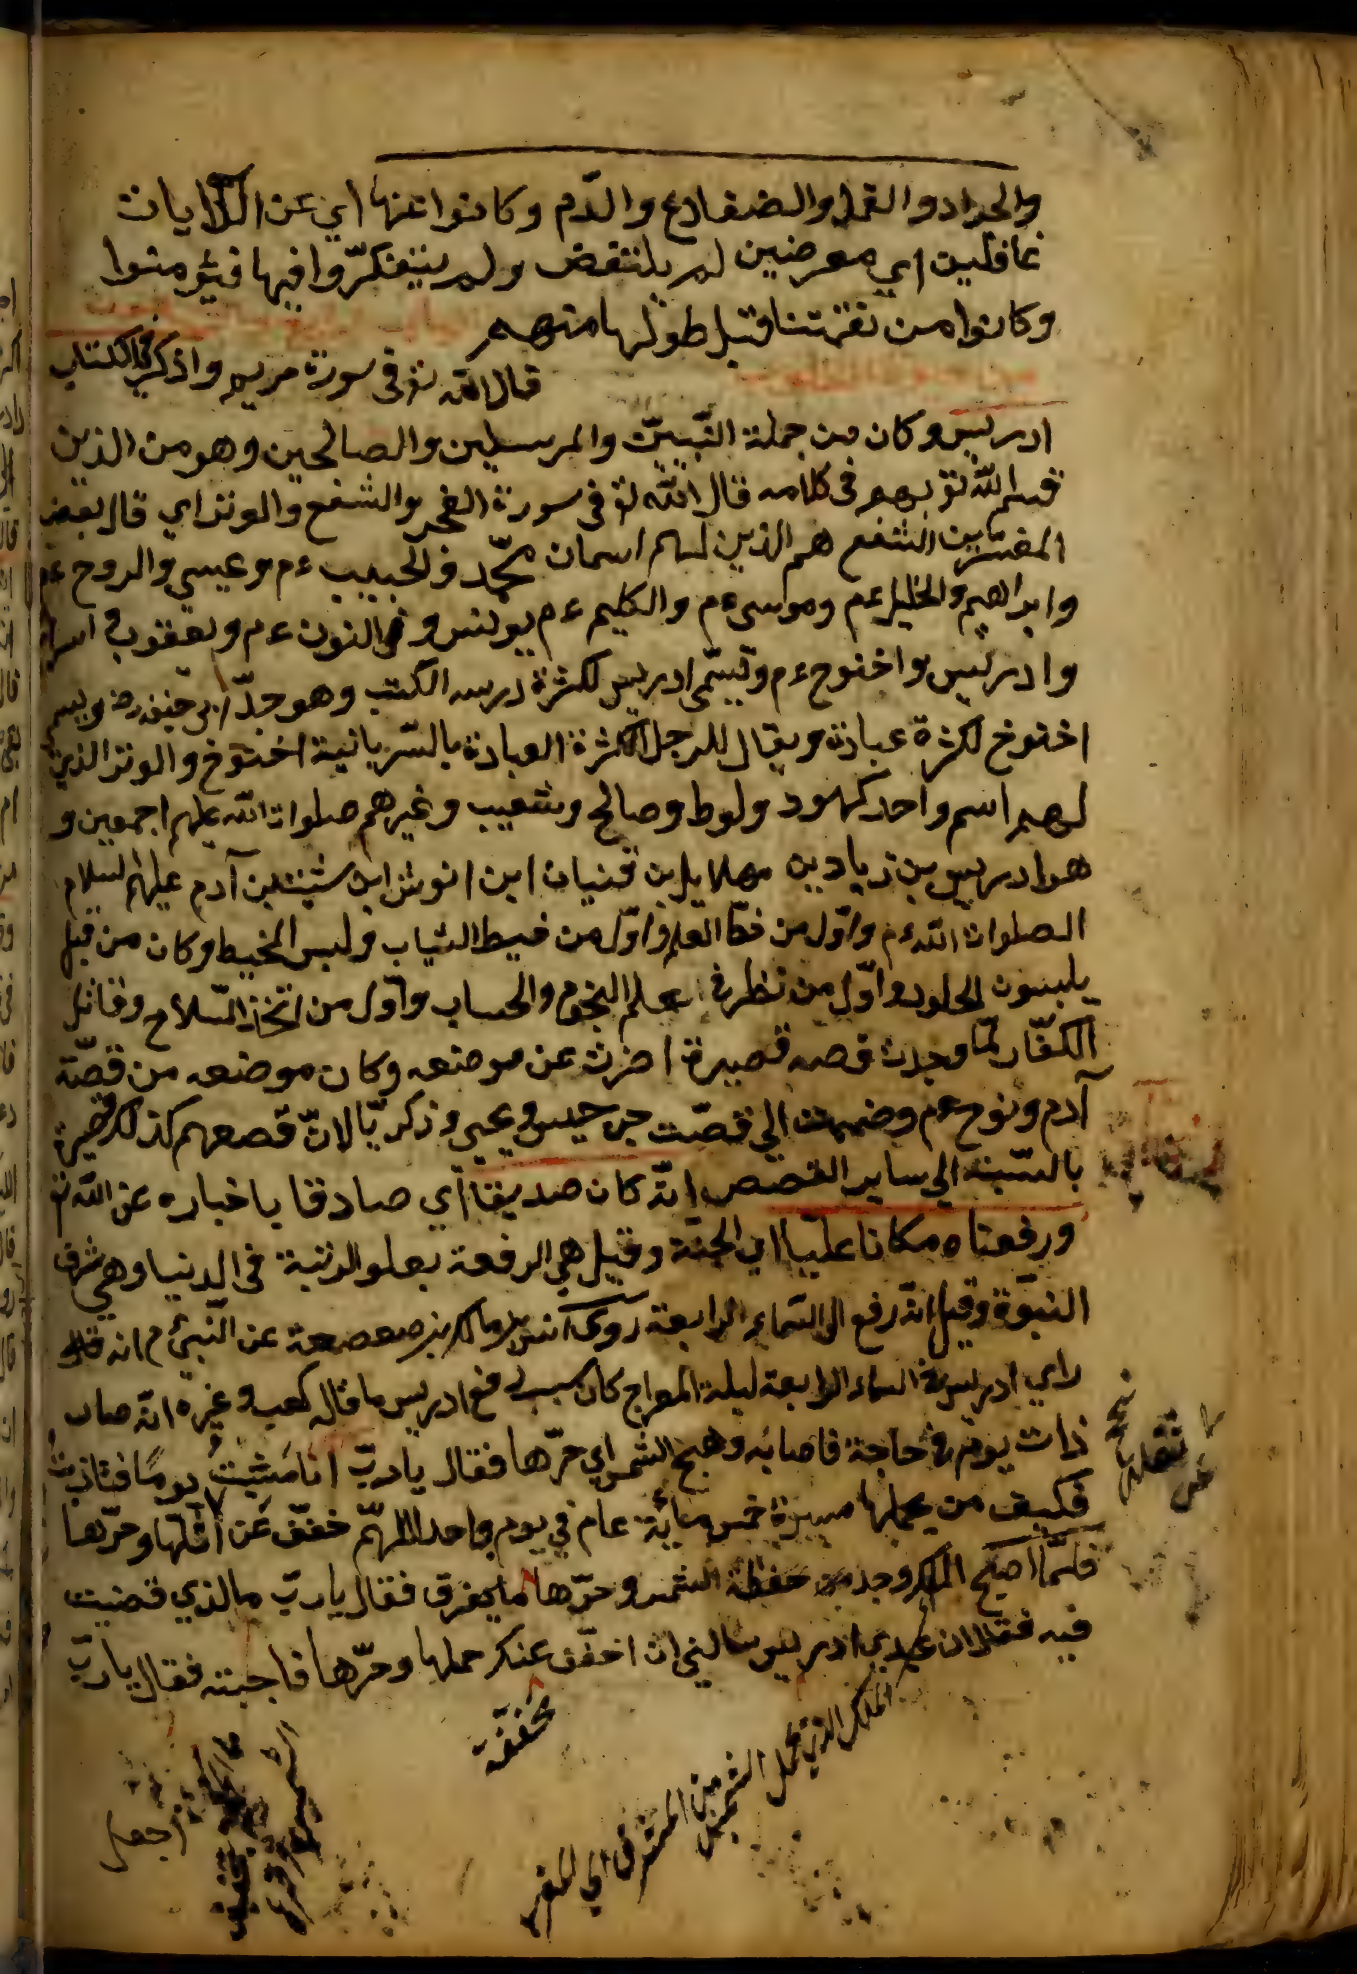 والجراد والقمل والضفادع والدّم وكانوا عنها اي عن الآيات
غافلين اي معرضين لم يلتفض ولم يتفكّروا فيها فيؤمنوا
وكانوا من نقمتنا قبل طولها منهم
قال الله تع في سورة مريم واذكر في الكتاب
ادريس وكان من جملة النّبيّن والمرسلين والصالحين وهو من الذين
قسم الله تع بهم في كلامه قال الله تع في سورة الفجر والشفع والوتر اي قال بعض
المفسّرين الشفع هم الذين لهم اسمان محمّد والحبيب ءم وعيسي والروح ءم
وابراهيم والخليل ءم وموسى ءم والكليم ءم يونس وذي النون ءم ويعقوب
وادريس واخنوح ءم وتسمّى ادريس لكثرة درسه الكتب وهو جدّ ابي حنيفه رض ويسم
اخنوخ لكثرة عبادته ويقال للرجل الكثرة العبادة بالسّريانية اخنوخ والوتر الذين
لهم اسم واحد كهود ولوط وصالح وشعيب وغيرهم صلوات الله عليهم اجمعين و
هو ادريس بن زياد بن مهلايل بن قنيان ابن انوش ابن شيث بن آدم عليهم السلام
الصلوات الله ءم واوّل من خطّ القلم واوّل من خيط الثياب ولبس المخيط وكان من قبل
يلبسون الجلود واوّل من نظر في علم النجوم والحساب واوّل من اتّخذ السّلاح وقاتل
الكفّار لمّا وجدت قصه قصيرة اخرت عن موضعه وكان موضعه من قصّة
آدم ونوح ءم وضممت الي قصّت جرجيس ويحيي وذكريّا لانّ قصصهم كذلك قصيرة
بالنّسبة الي ساير القصص انّه كان صديقا اي صادقا باخباره عن الله تع
ورفعناه مكانا عليّا اي الجنّة وقيل هي الرفعة بعلو الرتبة في الدنيا وهي شرف
النبوّة وقيل انّه رفع الى السّماء الرابعة روى انس بن مالك بن صعصعة عن النّبيّ ءم انه قال
راي ادريس في السماء الرابعة ليلة المعراج كان سبب رفع ادريس ما قاله كعب وغيره انّه صار
ذات يوم في حاجة فاصابه وهج الشمس اي حرّها فقال يا ربّ انا مشيت يومًا فتاذيت
فكيف من يحملها مسيرة خمس مائة عام في يوم واحد اللهمّ خفّف عن ثقلها وحرّها
فلمّا اصبح الملك وجد من خفظة الشمس وحرّها ما يعرق فقال يا ربّ ما الذي قضيت
فيه فقال ان عبدي ادريس سالني ان اخفّف عنك حملها وحرّها فاجبته فقال يا ربّ
مخففة
الملك الذي يحمل الشمس من المشرق الي المغرب
اجعل